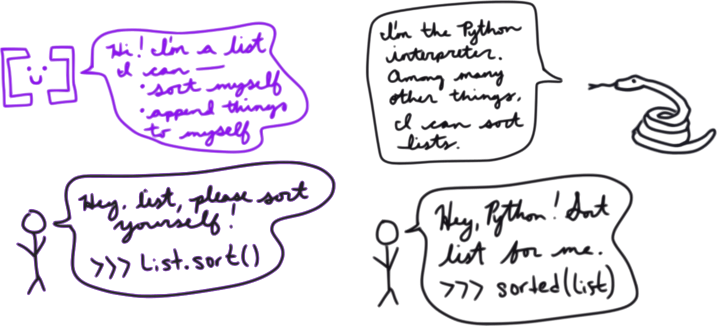 Hi! I'm a list
I can —
• sort myself
• append things
to myself
I'm the Python
interpreter.
Among many
other things,
I can sort
lists.
Hey, list, please sort
yourself!
>>> list.sort()
Hey, Python! Sort
list for me.
>>> sorted(list)